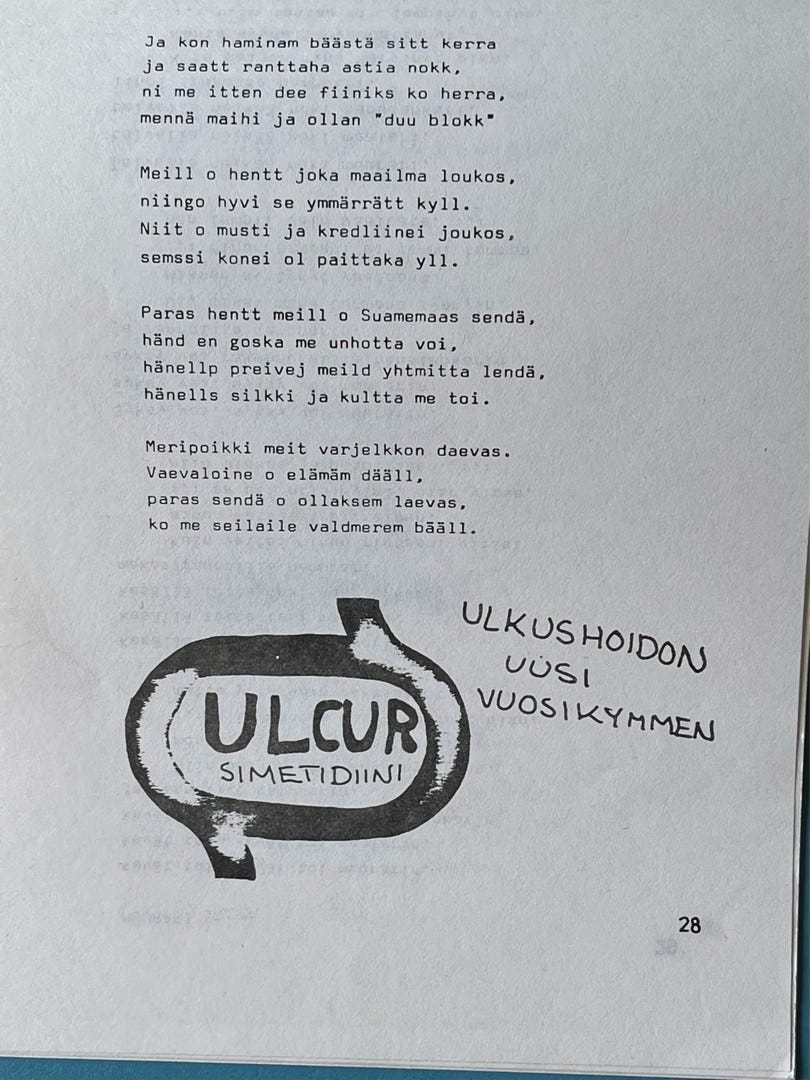 Ja kon haminam bäästä sitt kerra
ja saatt ranttaha astia nokk,
ni me itten dee fiiniks ko herra,
mennä maihi ja ollan "duu blokk"
Meill o hentt joka maailma loukos,
niingo hyvi se ymmärrätt kyll.
Niit o musti ja kredliinei joukos,
semssi konei ol paittaka yll.
Paras hentt meill o Suamemaas sendä,
händ en goska me unhotta voi,
hänellp preivej meild yhtmitta lendä,
hänells silkki ja kultta me toi.
Meripoikki meit varjelkkon daevas.
Vaevaloine o elämäm dääll,
paras sendä o ollaksem laevas,
ko me seilaile valdmerem bääll.
ULCUR
SIMETIDIINI
ULKUSHOIDON
UUSI
VUOSIKYMMEN
28